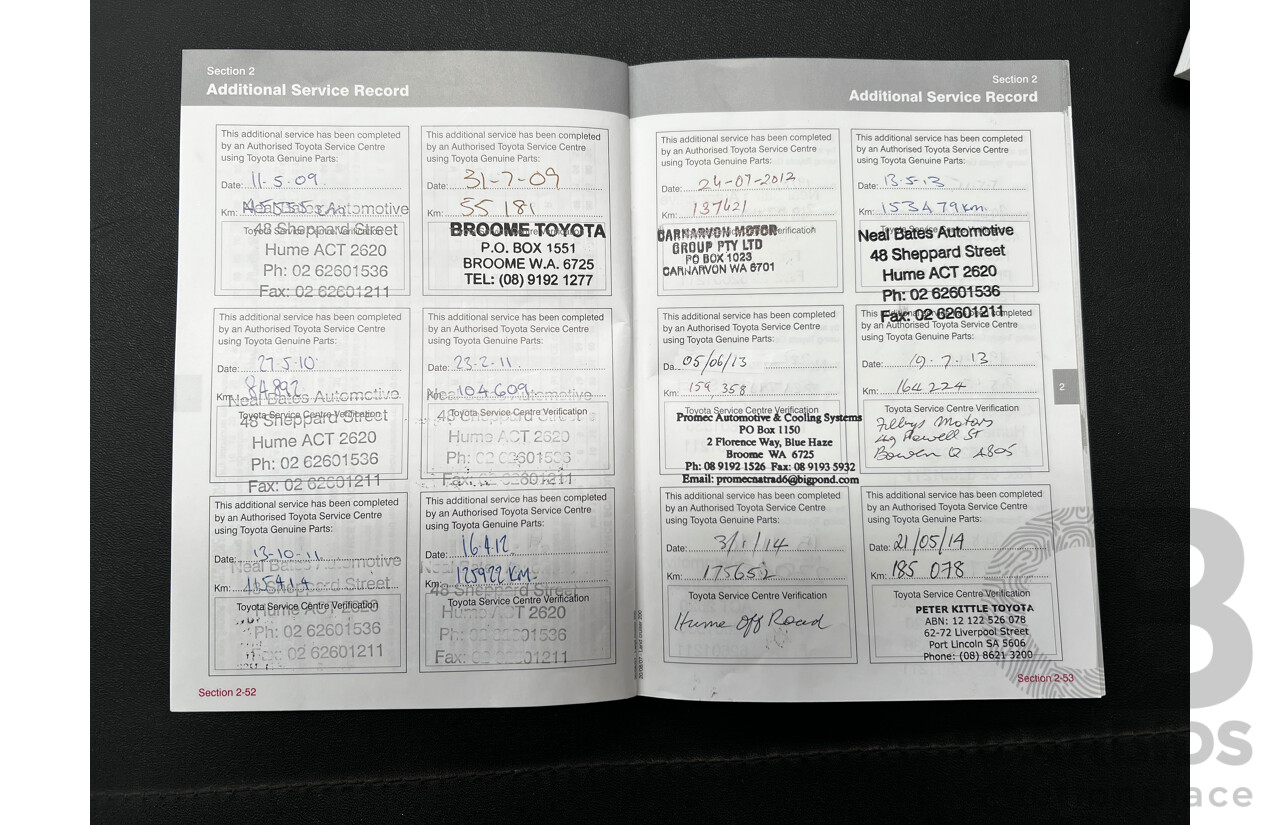 Section 2
Additional Service Record
This additional service has been completed
by an Authorised Toyota Service Centre
using Toyota Genuine Parts:
Date: 11-5-09
Km:
Neal Bates Automotive
48 Sheppard Street
Hume ACT 2620
Ph: 02 62601536
Fax: 02 62601211
This additional service has been completed
by an Authorised Toyota Service Centre
using Toyota Genuine Parts:
Date: 31-7-09
Km: 55 181
BROOME TOYOTA
P.O. BOX 1551
BROOME W.A. 6725
TEL: (08) 9192 1277
This additional service has been completed
by an Authorised Toyota Service Centre
using Toyota Genuine Parts:
Date: 27.5.10
Km: 84892
Neal Bates Automotive
Toyota Service Centre Verification
48 Sheppard Street
Hume ACT 2620
Ph: 02 62601536
Fax: 02 62601211
This additional service has been completed
by an Authorised Toyota Service Centre
using Toyota Genuine Parts:
Date: 23-2-11.
Km: 104609
Neal Bates Automotive
Toyota Service Centre Verification
48 Sheppard Street
Hume ACT 2620
Ph: 02 62601536
Fax: 02 62601211
This additional service has been completed
by an Authorised Toyota Service Centre
using Toyota Genuine Parts:
Date: 13-10-11
Neal Bates Automotive
Km: 115414
48 Sheppard Street
Toyota Service Centre Verification
Hume ACT 2620
Ph: 02 62601536
Fax: 02 62601211
This additional service has been completed
by an Authorised Toyota Service Centre
using Toyota Genuine Parts:
Date: 16412
Neal Bates Automotive
Km: 125922 Km
48 Sheppard Street
Toyota Service Centre Verification
Hume ACT 2620
Ph: 02 62601536
Fax: 02 62601211
Section 2-52
Section 2
Additional Service Record
This additional service has been completed
by an Authorised Toyota Service Centre
using Toyota Genuine Parts:
Date: 24-07-2012
Km: 137621
CARNARVON MOTOR
GROUP PTY LTD
PO BOX 1023
CARNARVON WA 6701
This additional service has been completed
by an Authorised Toyota Service Centre
using Toyota Genuine Parts:
Date: 13-5-13
Km: 153479km
Neal Bates Automotive
48 Sheppard Street
Hume ACT 2620
Ph: 02 62601536
Fax: 02 62601211
This additional service has been completed
by an Authorised Toyota Service Centre
using Toyota Genuine Parts:
Da.. 05/06/13
Km: 159,358
Toyota Service Centre Verification
Promec Automotive & Cooling Systems
PO Box 1150
2 Florence Way, Blue Haze
Broome WA 6725
Ph: 08 9192 1526 Fax: 08 9193 5932
Email: promecnatrad6@bigpond.com
This additional service has been completed
by an Authorised Toyota Service Centre
using Toyota Genuine Parts:
Date: 19.7.13
Km: 164224
Toyota Service Centre Verification
Motors
St
Bowen Q 4805
2
This additional service has been completed
by an Authorised Toyota Service Centre
using Toyota Genuine Parts:
Date: 3/1/14
Km: 175652
Toyota Service Centre Verification
Hume Off Road
This additional service has been completed
by an Authorised Toyota Service Centre
using Toyota Genuine Parts:
Date: 21/05/14
Km: 185 078
Toyota Service Centre Verification
PETER KITTLE TOYOTA
ABN: 12 122 526 078
62-72 Liverpool Street
Port Lincoln SA 5606
Phone: (08) 8621 3200
Section 2-53